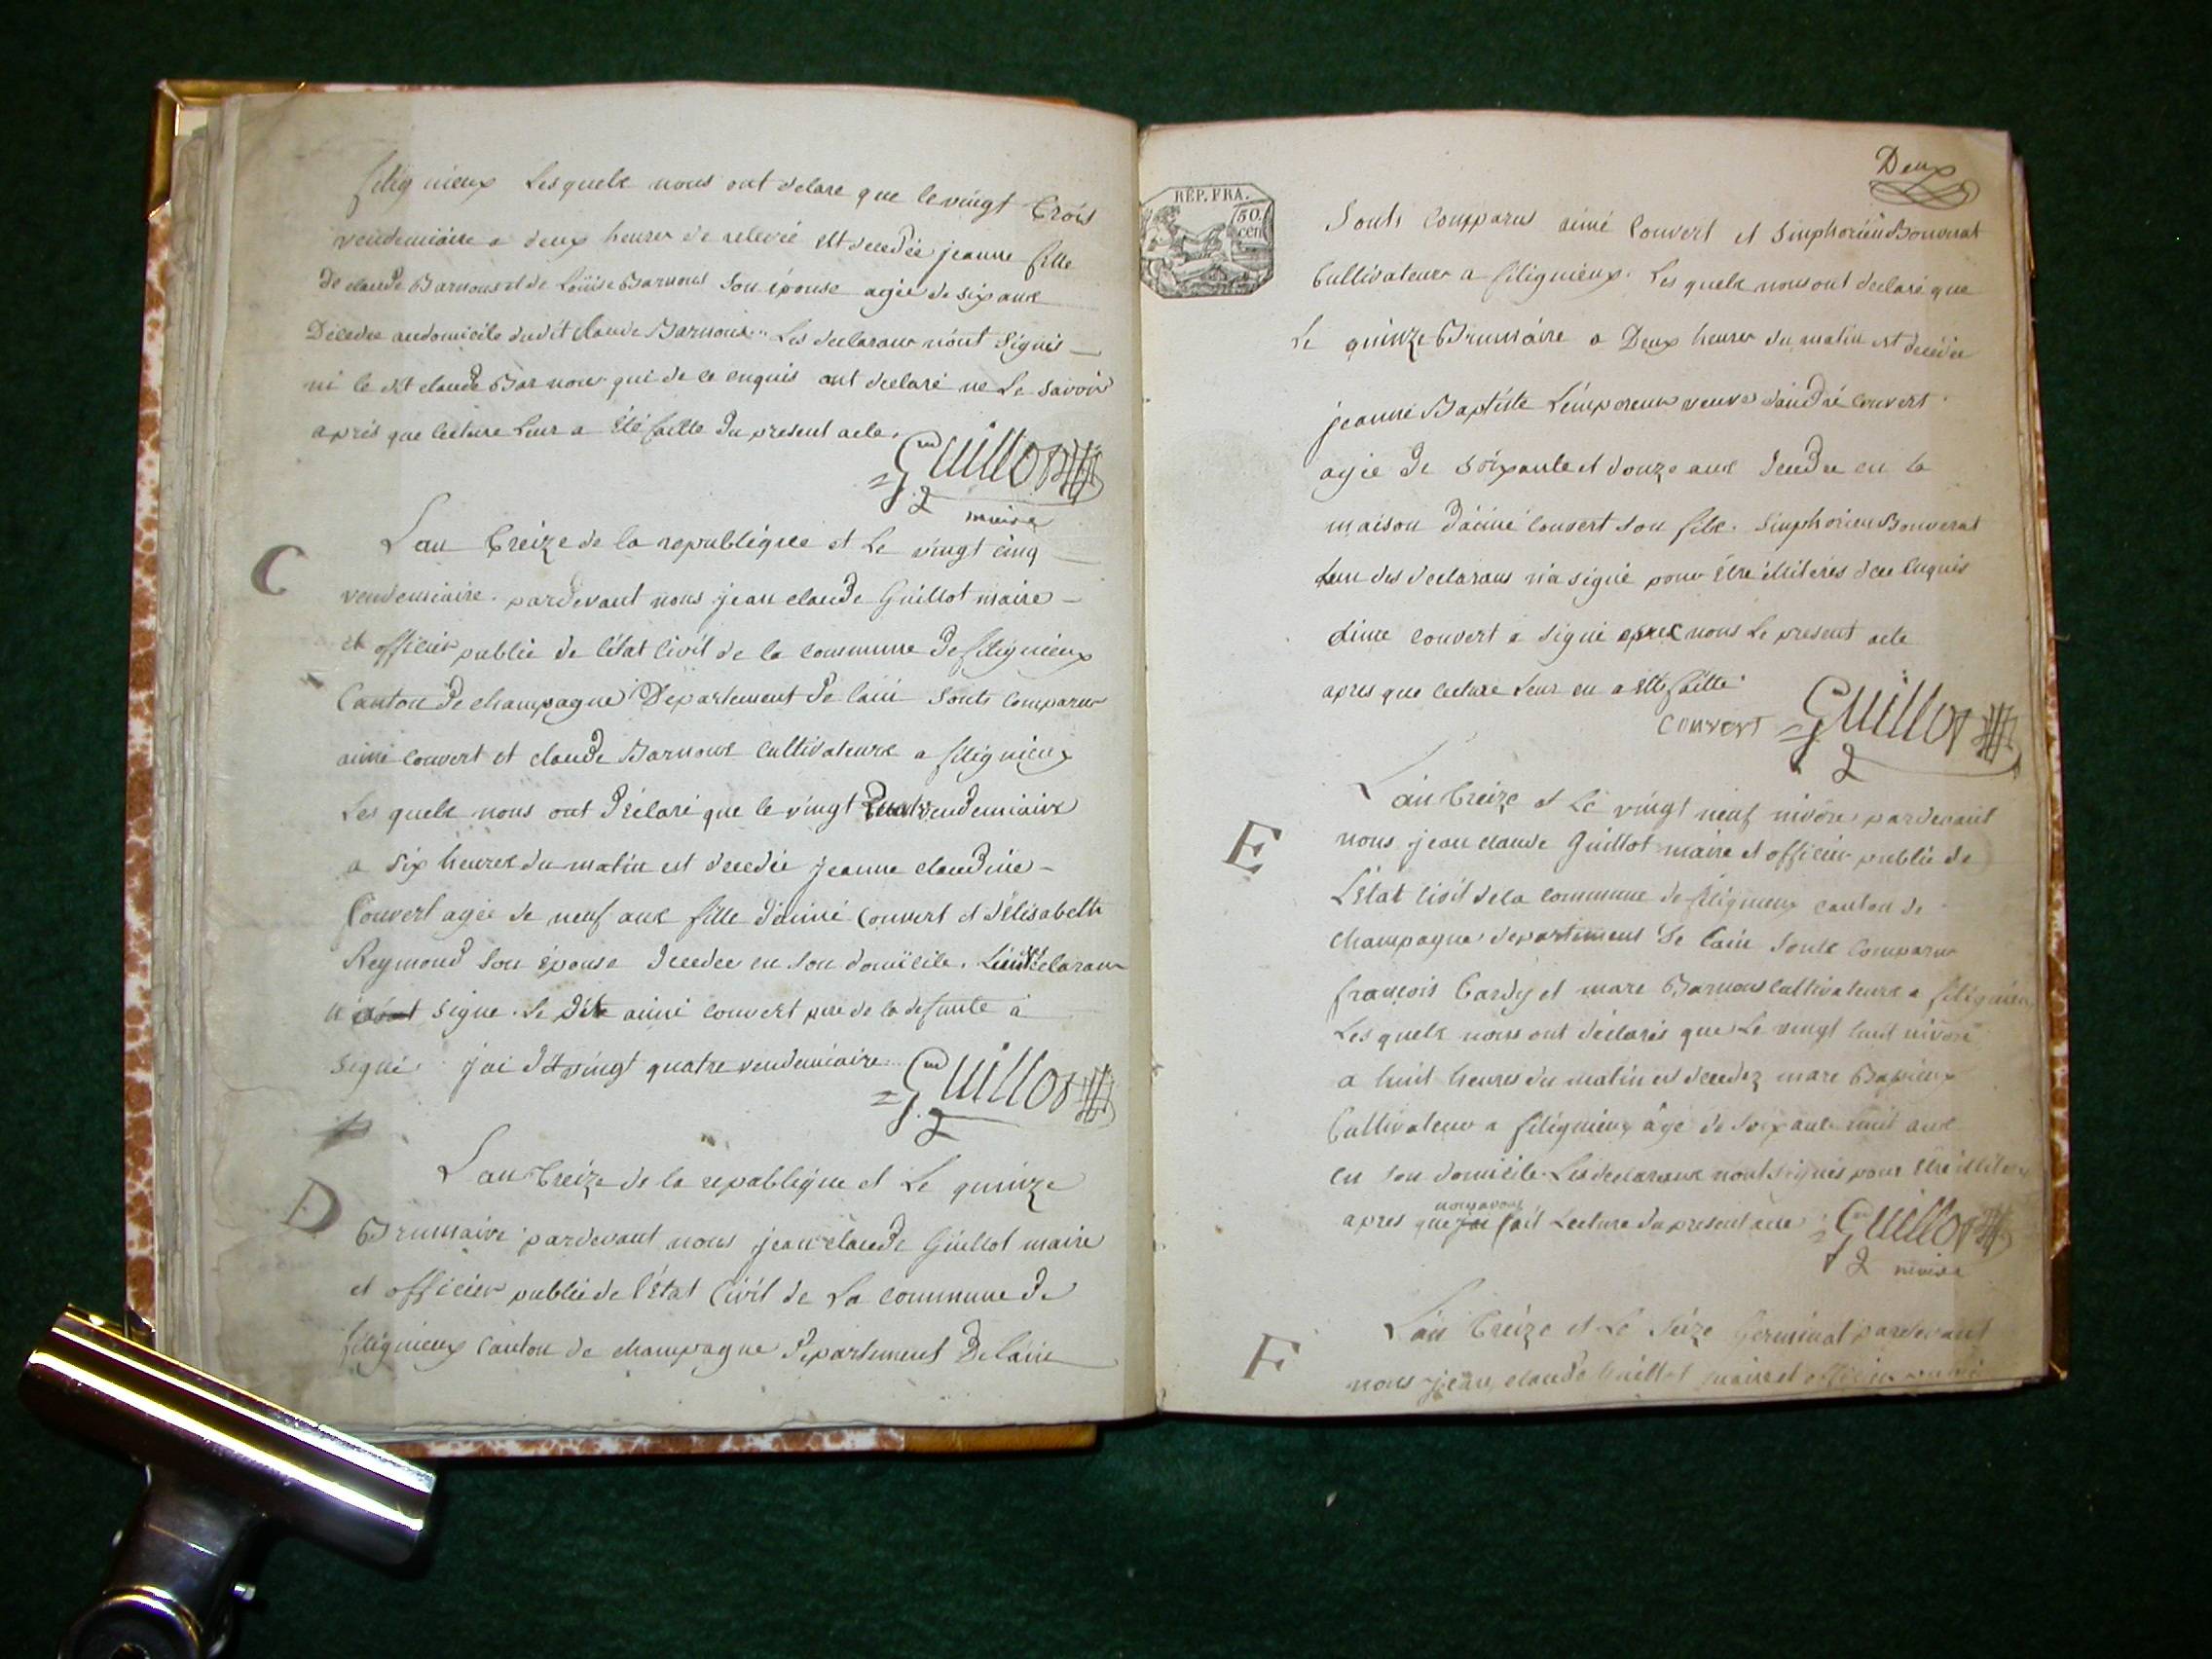 filignieux Les quels nous ont declare que le vingt trois
vendemiaire a deux heures de relevée est decedée jeanne fille
de claude Barnoux et de Loüise Barnous son épouse agée de six ans
Décédee audomicile dudit claude Barnoux Les declarans n'ont Signés
ni le dit claude Barnoux qui de ce enquis ont declaré ne Le savoir
après que lecture Leur a été faitte du present acte.
Guillot
maire
C
Lan treize de la republiquee et Le vingt cinq
vendemiaire. pardevant nous jean claude Guillot maire
et officier public de l'état civil de la commune de filignieux
Canton de champagne Departement de lain Sonts comparus
aimé couvert et claude Barnoux Cultivateurs a filignieux
Les quels nous ont déclaré que le vingt vendemiaire
a six heures du matin est decedée jeanne claudine
Couvert agée de neuf ans fille d'aimé Convert et d'élisabeth
Reymond son épouse decedée en son domicile.
signe. Le dit aimé convert pere de la defunte à
signé. j'ai dit vingt quatre vendemiaire
Guillot
D
Lan treize de la republique et Le quinze
Brumaire pardevant nous jean claude Guillot maire
et officier public de l'état Civil de La commune de
filignieux canton de champagne departement Delain
Deux
RÉP. FRA.
50.
cen
Sonts comparus aimé Couvert et Simphorien Bouvrat
Cultivateurs a filignieux. Les quels nous ont declaré que
Le quinze Brumaire a Deux heures du matin est decedée
jeanne Baptiste Lempereur veuve d'andré couvert
agée de soixante et douze ans decedée en la
maison d'aimé couvert son fils. Simphorien Bouverat
Lun des declarans n'a signé pour être illiteres de ce Enquis
aime couvert a signé avec nous Le present acte
apres que lecture Leur en a été faitte
convert Guillot
E
L'an treize et Le vingt neuf nivôse pardevant
nous jean claude Guillot maire et officier public de
L'état civil dela commune de filignieux canton de
champagne departement de lain Sonts comparus
françois Cardy et marc Barnous Cultivateurs a filignieux
Les quels nous ont déclarés que Le vingt huit nivose
a huit heures du matin est decedez marc
Cultivateur a filignieux âgé de soixante huit ans
en son domicile. Les declarans n'ont signés pour être illiteres
nous avons
apres que j'ai fait Lecture du present acte Guillot
maire
F
L'an treize et Le seize Germinal pardevant
nous jean claude Guillot maire et officier public